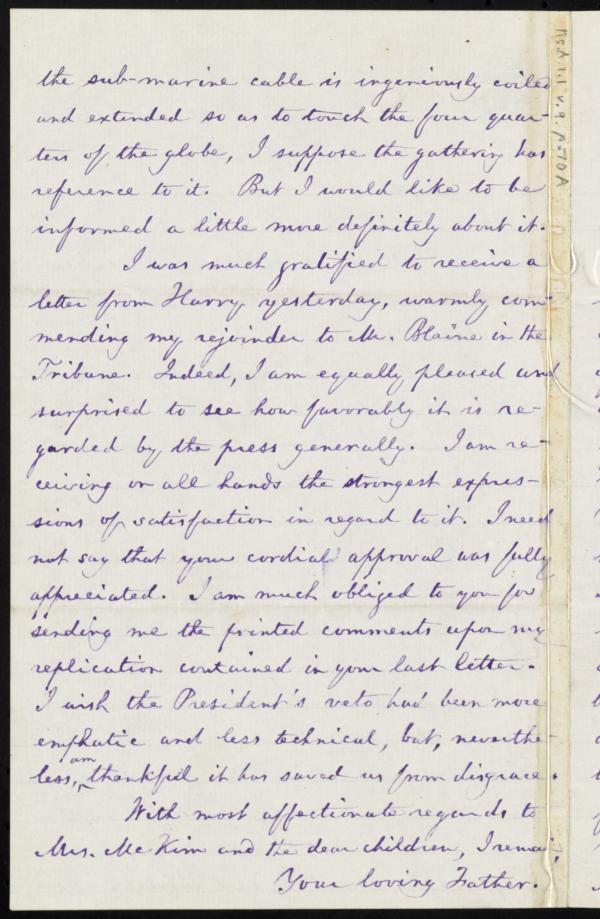 the sub-marine cable is ingeniously coiled
and extended so as to touch the four quar-
ters of the globe, I suppose the gathering has
reference to it. But I would like to be
informed a little more definitely about it.
I was much gratified to receive a
letter from Harry yesterday, warmly com-
mending my rejoinder to Mr. Blaine in the
Tribune. Indeed, I am equally pleased and
surprised to see how favorably it is re-
garded by the press generally. I am re-
ceiving on all hands the strongest expres-
sions of satisfaction in regard to it. I need
not say that your cordial approval was fully
appreciated. I am much obliged to you for
sending me the printed comments upon my
replication contained in your last letter.
I wish the President's veto had been more
emphatic and less technical, but, neverthe-
less, am thankful it has saved us from disgrace.
With most affectionate regards to
Mrs. McKim and the dear children, I remain,
Your loving Father.
Ms.A.1.1 v.9, p.70A